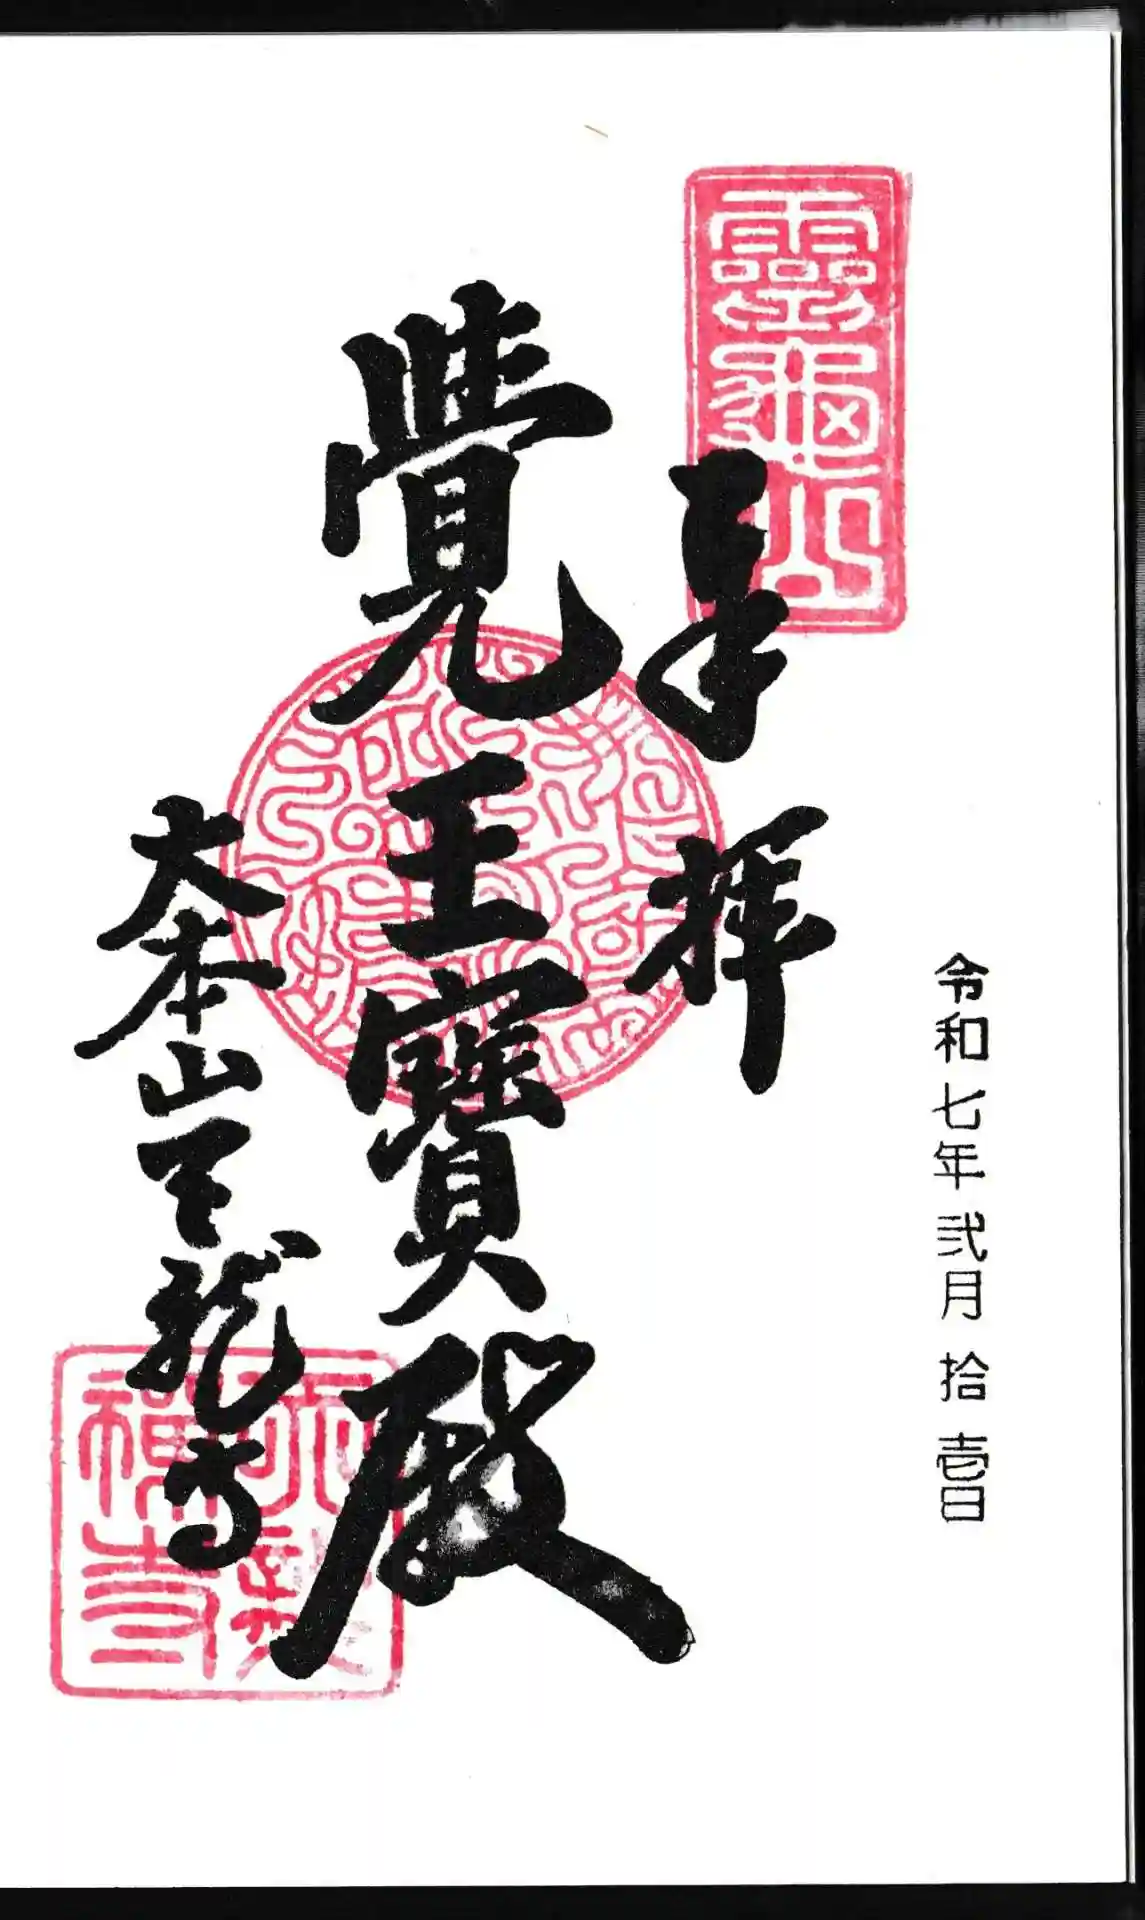 令和七年弐月拾壱日
奉拝
靈龜山
覺王寶殿
大本山天龍寺
天龍禅寺